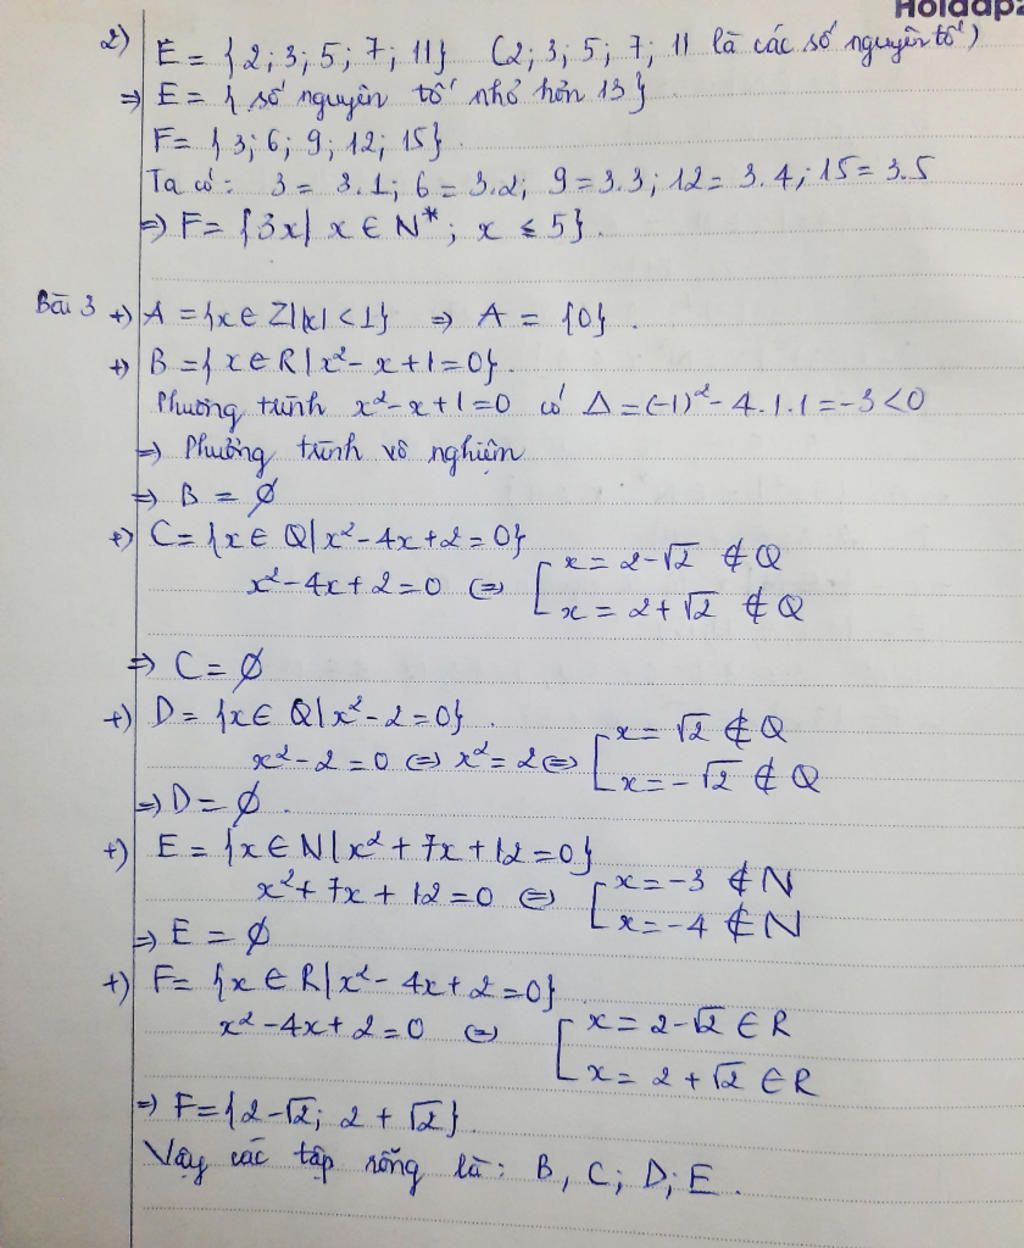 Hoidap2
2) E = {2; 3; 5; 7; 11} (2; 3; 5; 7; 11 là các số nguyên tố)
⇒ E = { số nguyên tố nhỏ hơn 13}
F = {3; 6; 9; 12; 15}.
Ta có: 3 = 3.1; 6 = 3.2; 9 = 3.3; 12 = 3.4; 15 = 3.5
⇒ F = {3x | x ∈ N*; x ≤ 5}.
Bài 3 +) A = {x ∈ Z | |x| < 1} ⇒ A = {0}.
+) B = {x ∈ R | x² - x + 1 = 0}.
Phương trình x² - x + 1 = 0 có Δ = (-1)² - 4.1.1 = -3 < 0
⇒ Phương trình vô nghiệm
⇒ B = ∅
+) C = {x ∈ Q | x² - 4x + 2 = 0}
x² - 4x + 2 = 0 ⇔ [ x = 2 - √2 ∉ Q
x = 2 + √2 ∉ Q
⇒ C = ∅
+) D = {x ∈ Q | x² - 2 = 0}.
x² - 2 = 0 ⇔ x² = 2 ⇔ [ x = √2 ∉ Q
x = -√2 ∉ Q
⇒ D = ∅.
+) E = {x ∈ N | x² + 7x + 12 = 0}
x² + 7x + 12 = 0 ⇔ [ x = -3 ∉ N
x = -4 ∉ N
⇒ E = ∅
+) F = {x ∈ R | x² - 4x + 2 = 0}
x² - 4x + 2 = 0 ⇔ [ x = 2 - √2 ∈ R
x = 2 + √2 ∈ R
⇒ F = {2 - √2; 2 + √2}.
Vậy các tập rỗng là: B, C; D; E.